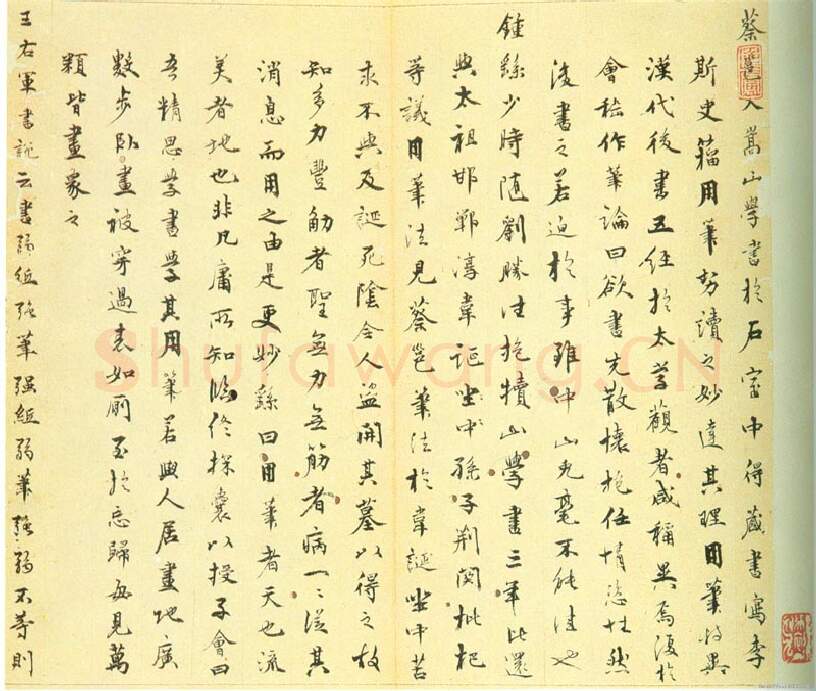 蔡邕入嵩山學書於石室中得藏書寫李
斯史籀用筆勢讀之妙達其理用筆特異
漢代後書五經於太學觀者咸稱異焉復於
會嵇作筆論曰欲書先散懷抱任情恣性然
後書之若迫於事雖中山兔毫不能佳也
鍾繇少時隨劉勝往抱犢山學書三年比還
與太祖邯鄲淳韋誕坐中孫子荊関枇杷
等議用筆法見蔡邕筆法於韋誕坐中苦
求不與及誕死陰令人盜開其墓以得之故
知多力豐觔者聖無力無筋者病一一從其
消息而用之由是更妙繇曰用筆者天也流
美者地也非凡庸所知臨終探囊以授子會曰
吾精思學書學其用筆若與人居畫地廣
數步臥畫被穿過表如廁至於忘歸每見萬
類皆畫象之
王右軍書訣云書弱紙强筆强紙弱筆强弱不等則
Shufawang.CN